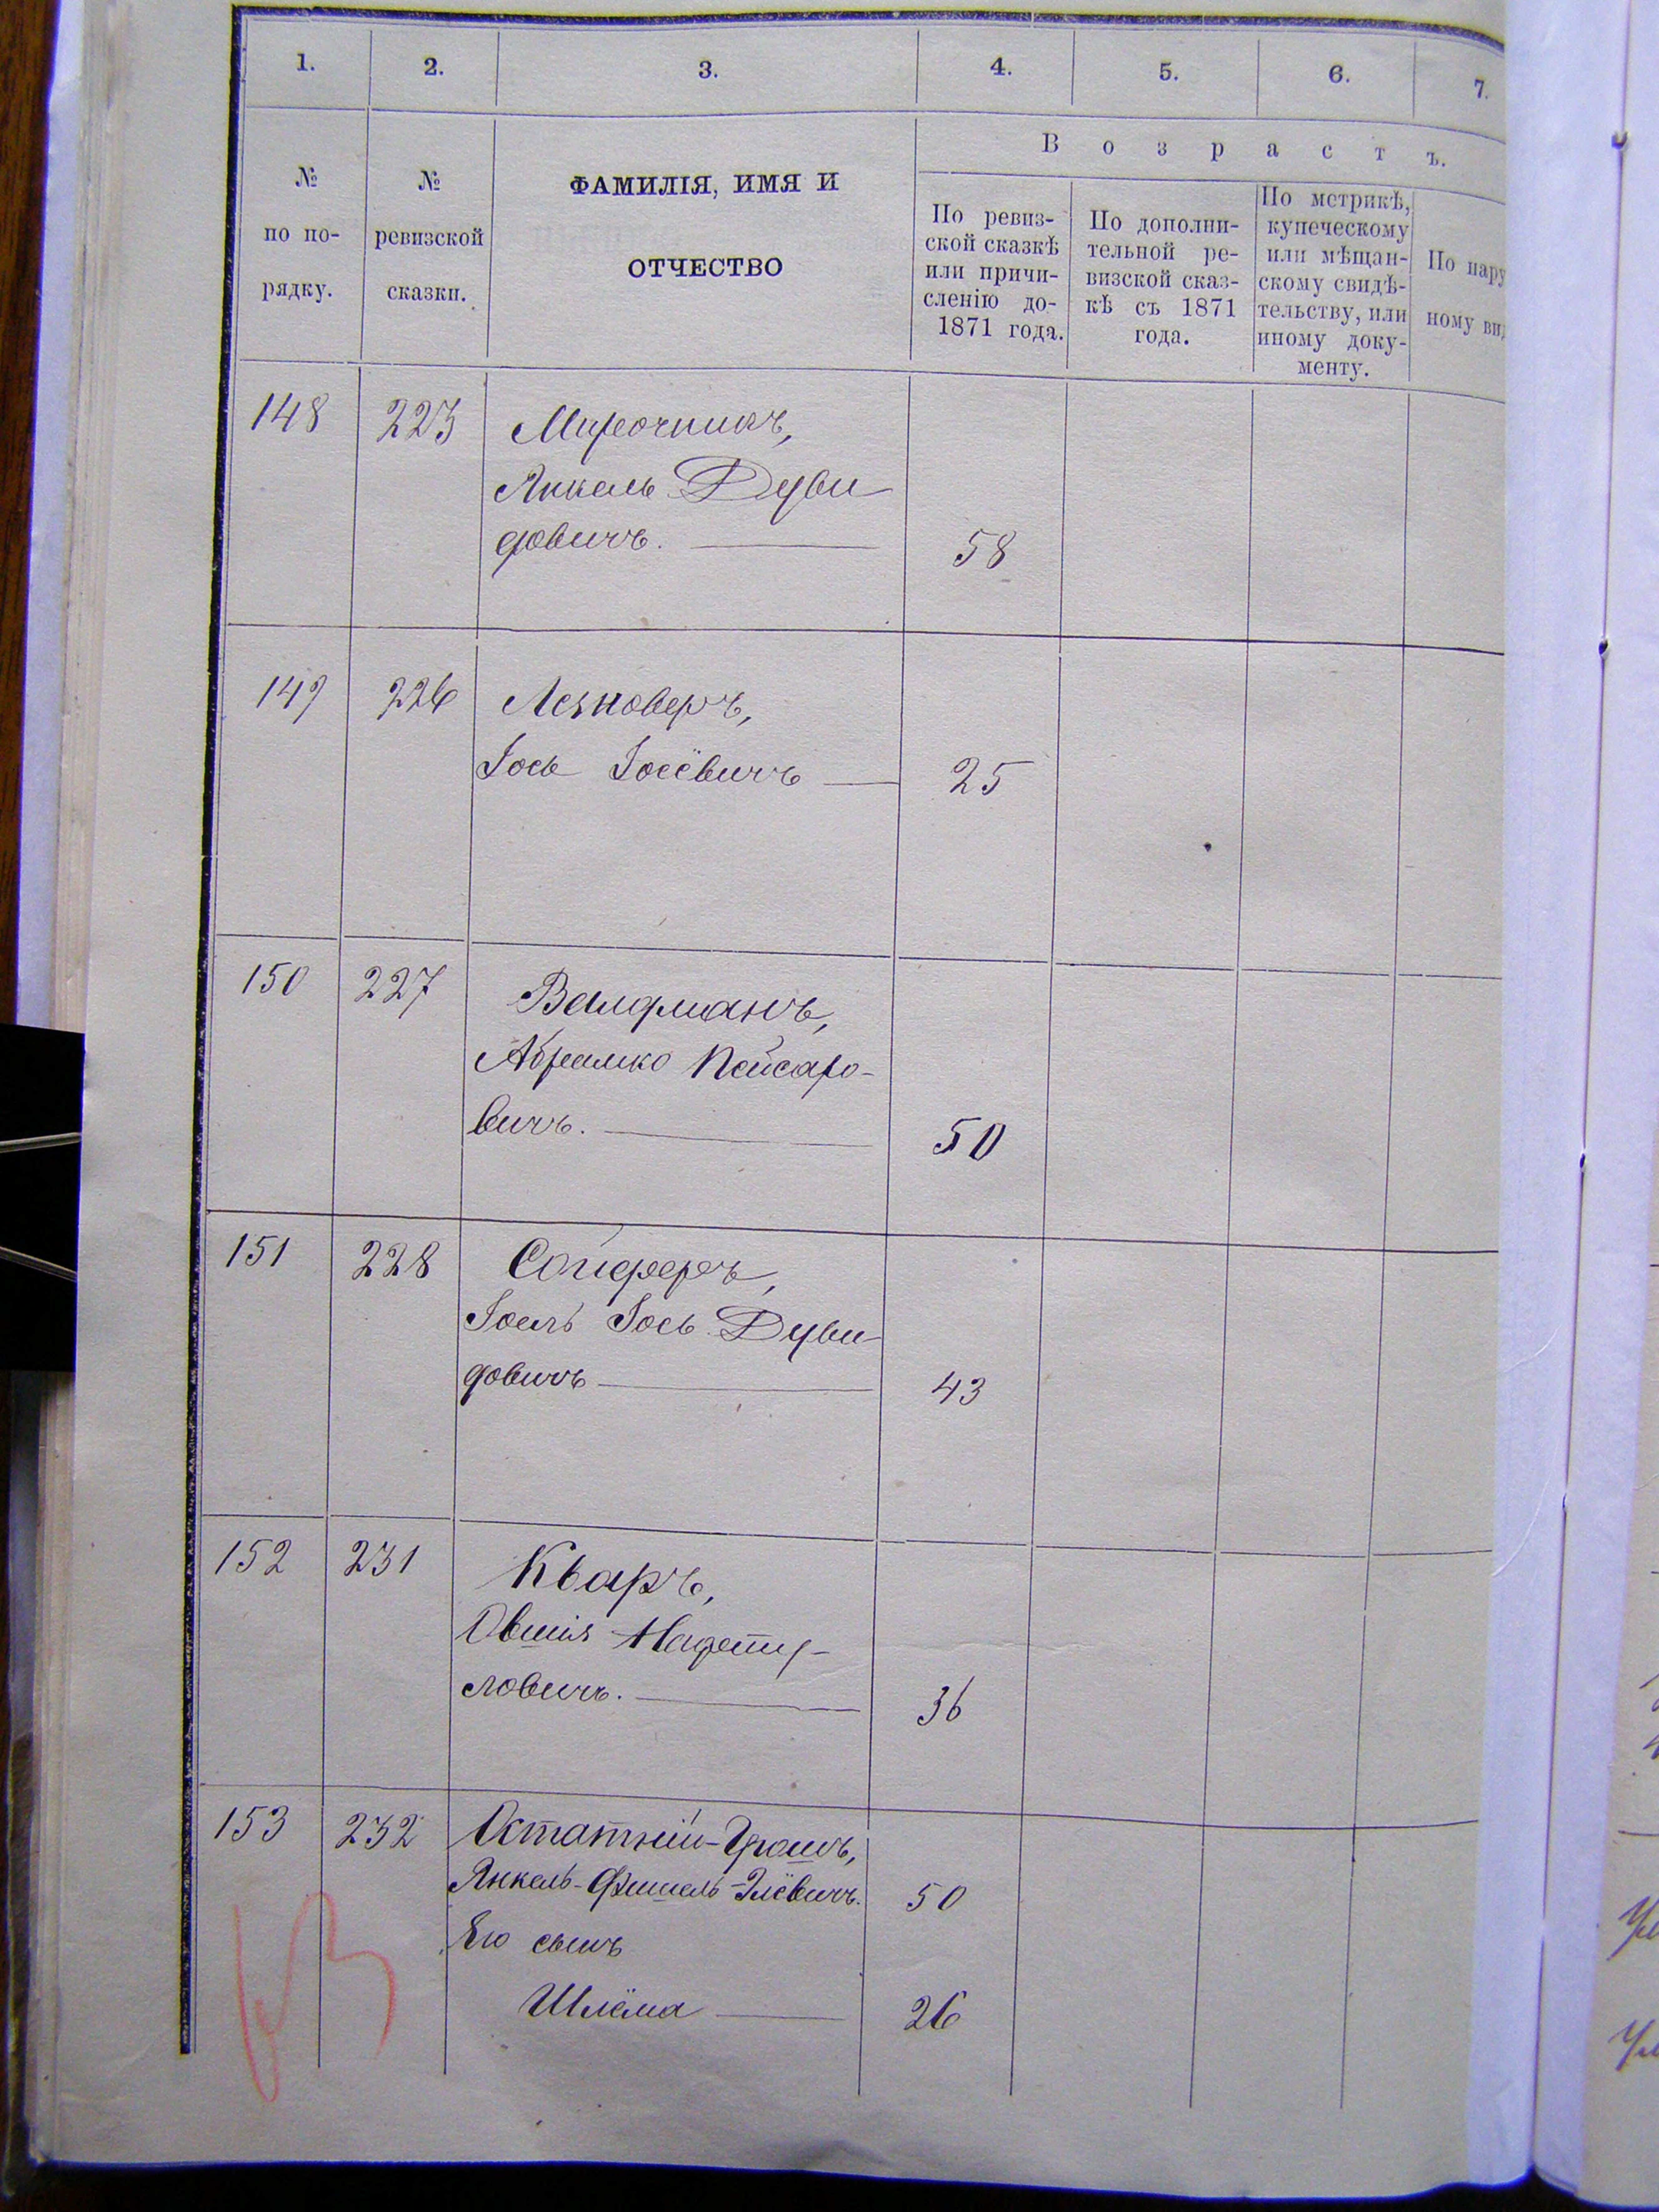 1. 2. 3. 4. 5. 6. 7.
Возрастъ.
№ по по-рядку.
№ ревизской сказки.
ФАМИЛІЯ, ИМЯ И
ОТЧЕСТВО
По ревиз-
ской сказкѣ
или причи-
сленію до-
1871 года.
По дополни-
тельной ре-
визской сказ-
кѣ съ 1871
года.
По метрикѣ,
купеческому
или мѣщан-
скому свидѣ-
тельству, или
иному доку-
менту.
По нару
ному вид
148 223 Мирочникъ,
Янкель Дуви
довичъ. 58
149 226 Лезноверъ,
Іось Іосёвичъ 25
150 227 Валдманъ,
Абрамко Пейсаро-
вичъ. 50
151 228 Сойферъ,
Іоель Іось Дуви
довичъ 43
152 231 Кваръ,
Овшія
ловичъ. 36
153 232 Остатній-Грошъ,
Янкель-Фишель Элёвичъ. 50
Его сынъ
Шлёма 26